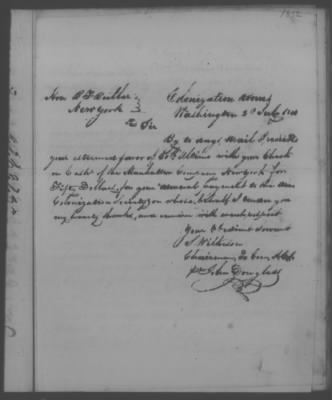 1852
Hon. B. F. Butler
New York
Dr Sir
Colonization Rooms
Washington 2d July
By to days Mail I received
your esteemed favor of with your Check
on Cashr of the Manhattan Company New York for
Fifty Dollars, for your annual payment to the Am
Colonization Society, on whose behalf I render you
my hearty thanks, and remain with much respect
Your Obedient Servant
S. Wilkeson
Chairman Ex Com
pr John Douglass